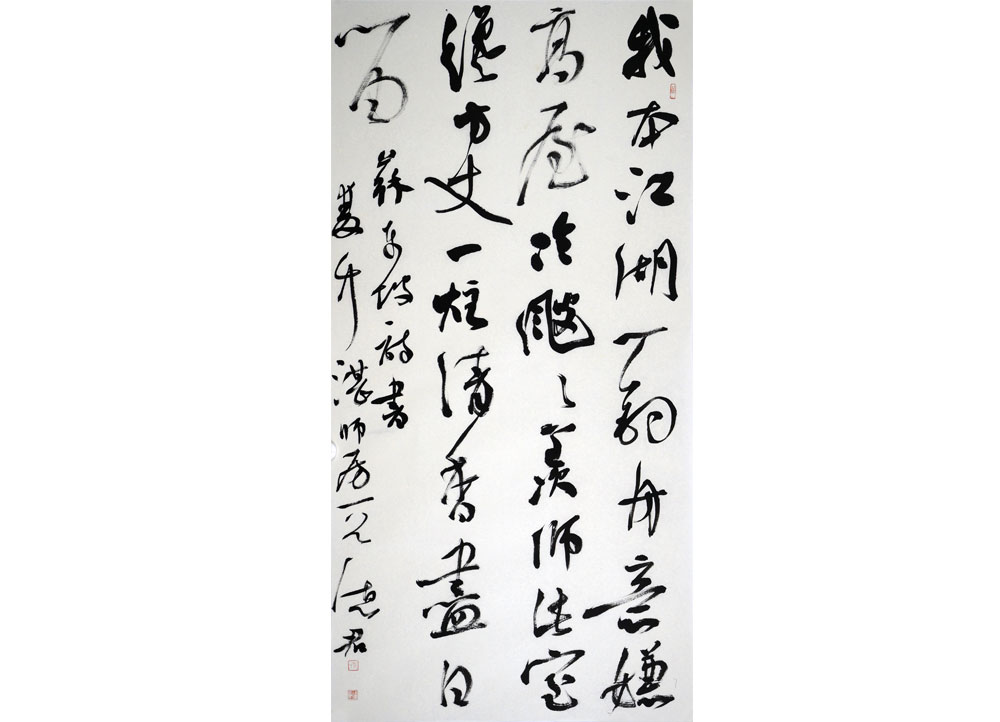 我本江湖一釣舟意嫌
高屋冷颼〻羨師此室
纔方丈一炷清香盡日
留
蘇東坡詩書
雙竹湛師房一首 德君